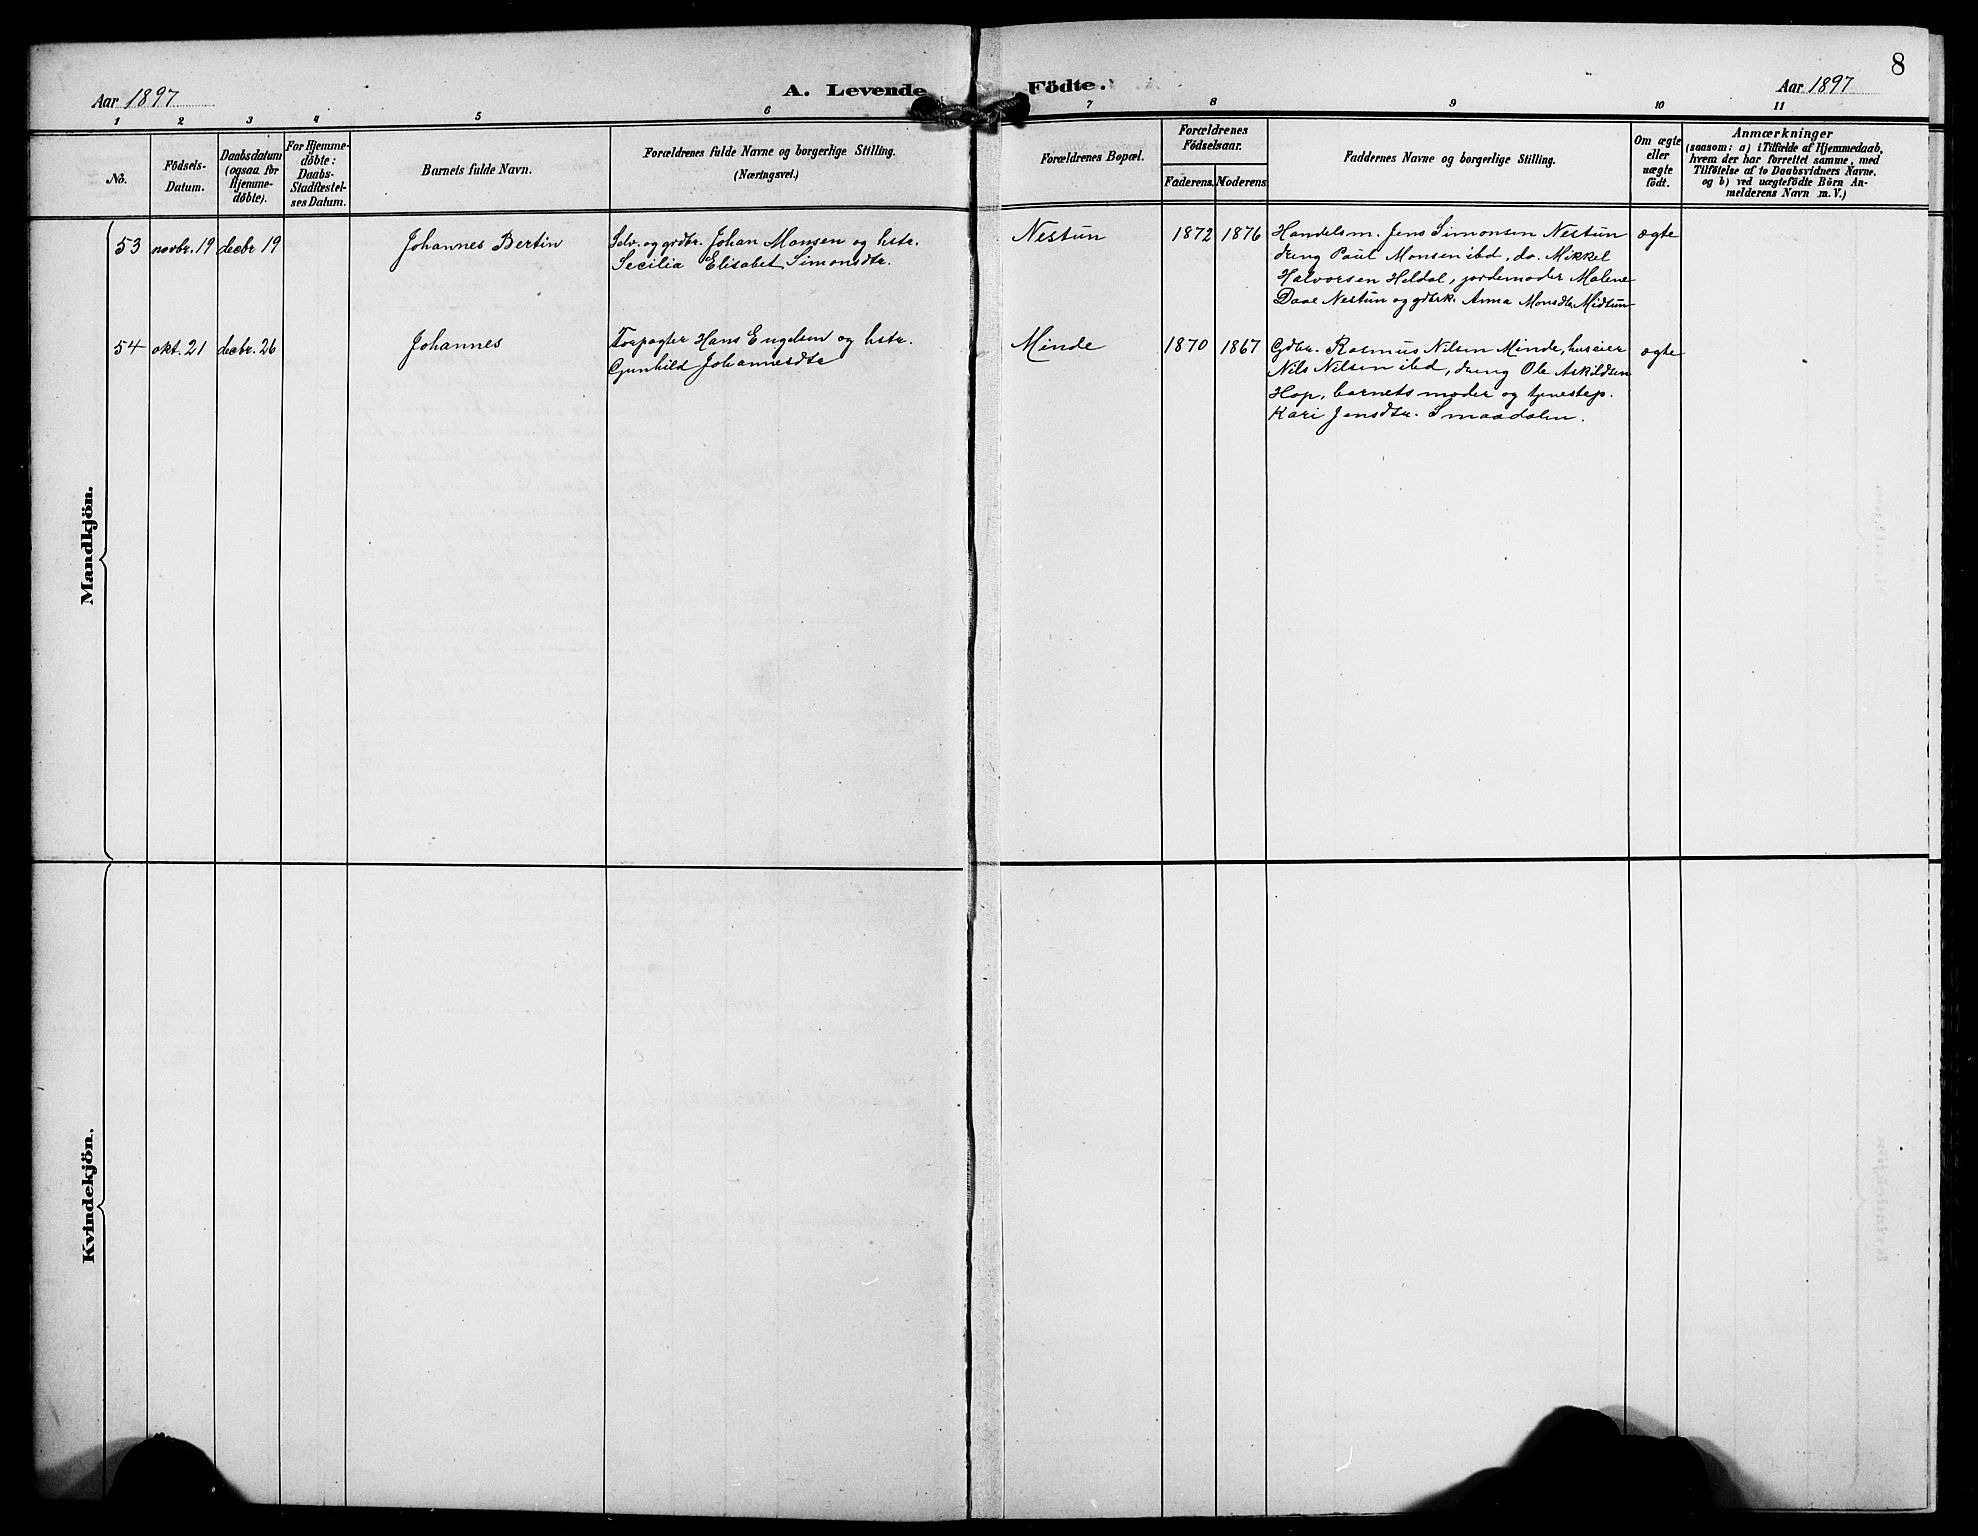 8
Aar 1897
A. Levende
Födte.
Aar 1897
1 2 3 4 5 6 7 8 9 10 11
No.
Födsels-
Datum.
Daabsdatum
(ogsaa for
Hjemme-
döbte).
For Hjemme-
döbte:
Daabs-
Stadfæstel-
ses Datum.
Barnets fulde Navn.
Forældrenes fulde Navne og borgerlige Stilling.
(Næringsvei.)
Forældrenes Bopæl.
Forældrenes
Födselsaar.
Faderens. Moderens.
Faddernes Navne og borgerlige Stilling.
Om ægte
eller
uægte
födt.
Anmærkninger
(saasom: a) i Tilfælde af Hjemmedaab,
hvem der har forrettet samme, med
Tilföielse af to Daabsvidners Navne.
og b) ved uægtefödte Börn An-
melderens Navn m. V.)
Mandkjön.
53 novbr. 19 decbr 19 Johannes Bertin
Selv. og grdbr. Johan Monsen og hstr.
Secilia Elisabet Simonsdtr.
Nestun 1872 1876
Handelsm. Jens Simonsen Nestun
dreng Paul Monsen ibd, do. Mikkel
Halvorsen Heldal, jordemoder Malene
Daae Nestun og gdbrk. Anna Monsdtr Midtun
ægte
54 okt. 21 decbr. 26 Johannes
Forpagter Hans Engelsen og hstr.
Gunhild Johannesdtr
Minde 1870 1867
Gdbr. Rasmus Nilsen Minde, huseier
Nils Nilsen ibd, dreng Ole Askildsen
Hop, barnets moder og tjenestep.
Kari Jensdtr. Smaadalen.
ægte
Kvindekjön.